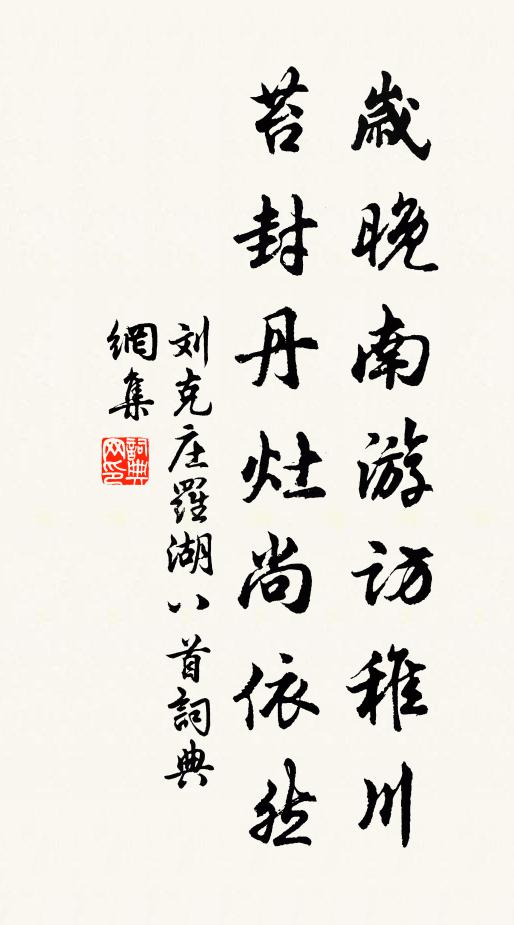 歲晚南游訪稚川
苔封丹灶尚依然
刘克庄羅湖八首詞典
網集
詞典
网印